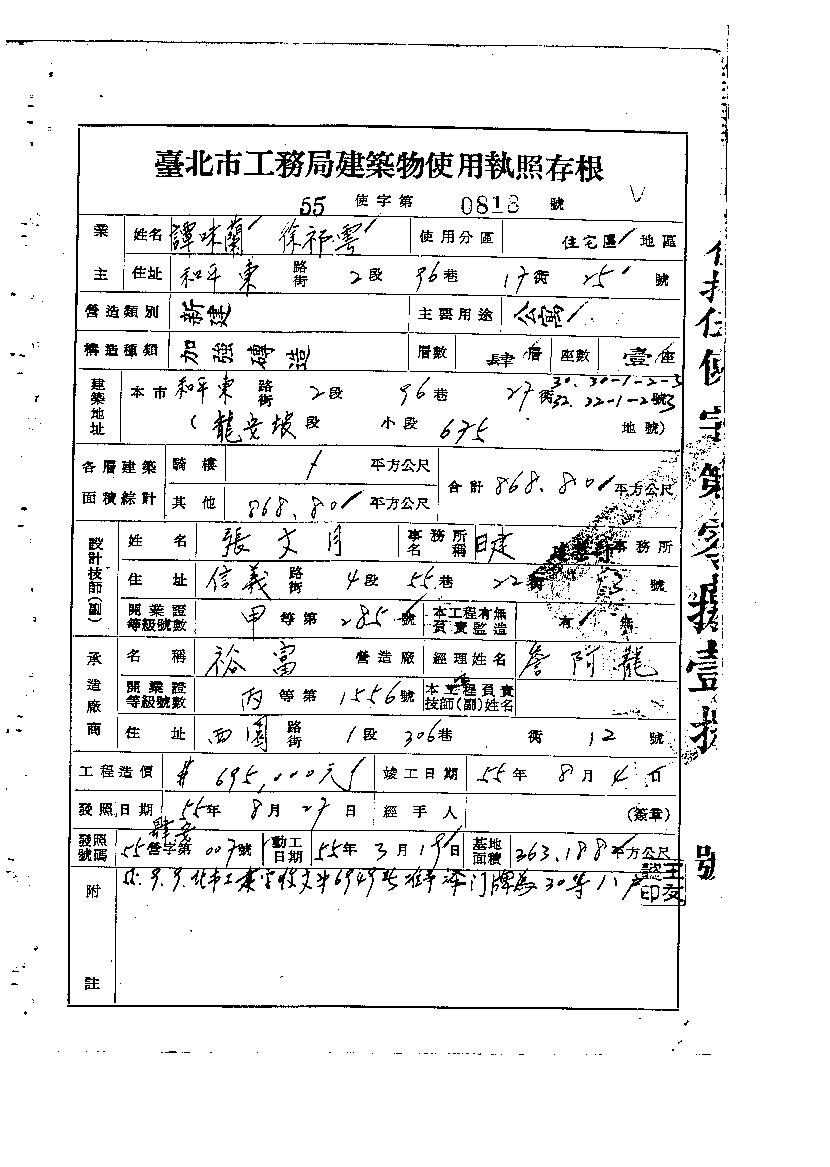 臺北市工務局建築物使用執照存根
55 使字第 0818 號
業主 姓名 譚味蘭 徐祁雲 使用分區 住宅區 地區
住址 和平東 路街 2段 96巷 17衖 25 號
營造類別 新建 主要用途 公寓
構造種類 加強磚造 層數 肆層 座數 壹座
建築地址 本市 和平東 路街 2段 96巷 27衖 30.30-1-2-3 32.32-1-2-3 號
(龍安坡 段 小段 675 地號)
各層建築面積綜計 騎樓 平方公尺 合計 868.80 平方公尺
其他 868.80 平方公尺
設計技師(副) 姓名 張文月 事務所名稱 日建 事務所
住址 信義 路街 4段 55巷 22衖 3 號
開業證等級號數 甲 等第 285 號 本工程有無負責監造 有 無
承造廠商 名稱 裕富 營造廠 經理姓名 詹阿龍
開業證等級號數 丙 等第 1556 號 本工程負責技師(副)姓名
住址 西園 路街 1段 306巷 衖 12 號
工程造價 695,000元 竣工日期 55年 8月 4日
發照日期 55年 8月 27日 經手人 (簽章)
發照號碼 55 營字第 007號 動工日期 55年 3月 19日 基地面積 263.188 平方公尺
附註 55.9.9.北市工 字 6949 門牌為30等八戶